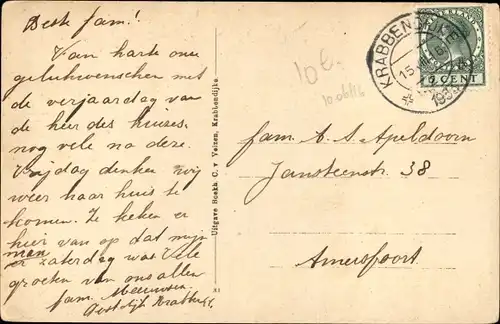 Beste fam!
Van harte onze
gelukwenschen met
de verjaardag van
de heer des huizes
nog vele na deze.
Vrijdag denken wij
weer naar huis te
komen. Ze keken er
hier van op dat mijn
man er zaterdag was Vele
groeten van ons allen
fam. Meeuwsen
Krabb
Uitgave Boekh. C. v Velzen, Krabbendijke
10b.
NEDERLAND
6 CENT
KRABBENDIJKE
15
193
fam. A. S. Apeldoorn
Jansteenstr. 38
Amersfoort